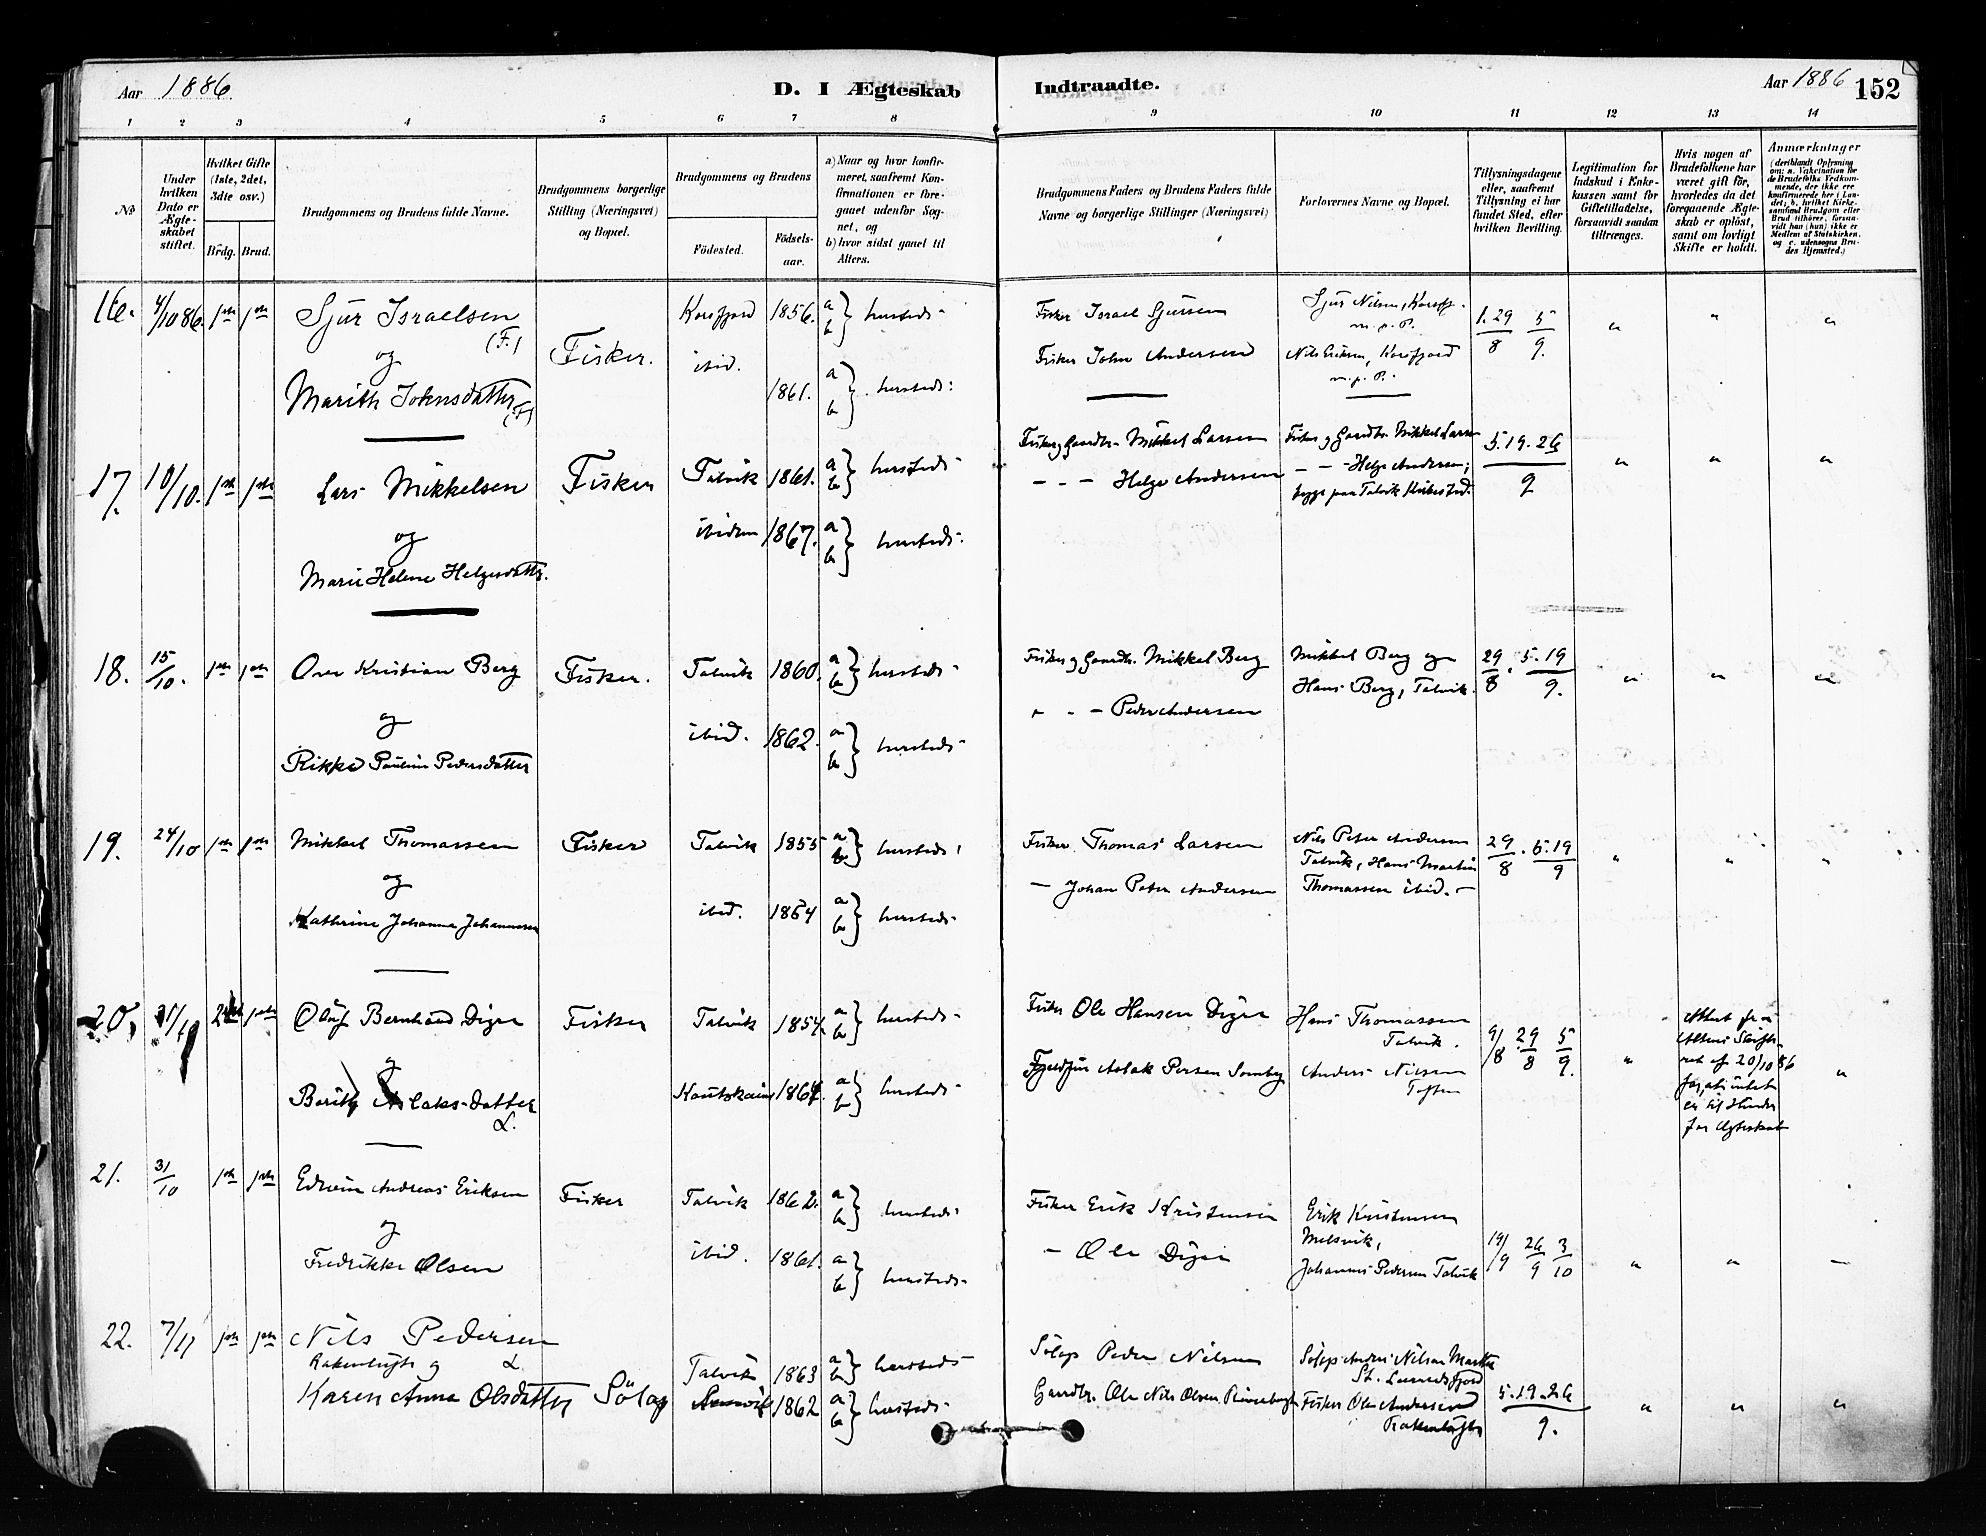 Aar 1886. D. I Ægteskab Indtraadte. Aar 1886 152
1 2 3 4 5 6 7 8 9 10 11 12 13 14
No
Under hvilken Dato er Ægteskabet stiftet.
Hvilket Gifte (1ste, 2det, 3dte osv.)
Brdg. Brud.
Brudgommens og Brudens fulde Navne.
Brudgommens borgerlige Stilling (Næringsvei) og Bopæl.
Brudgommens og Brudens
Födested. Födsels-aar.
a) Naar og hvor konfirmeret, saafremt Konfirmationen er foregaaet udenfor Sognet, og
b) hvor sidst gaaet til Alters.
Brudgommens Faders og Brudens Faders fulde Navne og borgerlige Stillinger (Næringsvei)
Forlovernes Navne og Bopæl.
Tillysningsdagene eller, saafremt Tillysning ei har fundet Sted, efter hvilken Bevilling.
Legitimation for Indskud i Enkekassen samt for Giftetilladelse, forsaavidt saadan tiltrænges.
Hvis nogen af Brudefolkene har været gift för, hvorledes da det foregaaende Ægteskab er oplöst, samt om lovligt Skifte er holdt.
Anmærkninger
(deriblandt Oplysning om: a. Vakcination for de Brudefolks Vedkommende, der ikke ere konfirmerede her i Landet; b. hvilket Kirkesamfund Brudgom eller Brud tilhörer, forsaavidt han (hun) ikke er Medlem af Statskirken, og c. udensogns Brudes Hjemsted.)
16. 4/10 86. 1ste 1ste Sjur Israelsen (F.) Fisker. Korsfjord 1856. a b } hersteds Fisker Israel Sjursen Sjur Nilsen, Korsfj. m. p. P. 1. 29/8 5/9. " " "
og
Marith Johnsdatter (F) ibid. 1861. a b } hersteds Fisker John Andersen Nils Eriksen, Korsfjord m. p. P.
17. 10/10. 1ste 1ste Lars Mikkelsen Fisker Talvik 1861. a b } hersteds Fisker og Gaardbr. Mikkel Larsen Fisker og Gaardbr. Mikkel Larsen 5. 19. 26/9 " " "
og
Marie Helene Helgesdatter. ibidem 1867. a b } hersteds. – – – Helge Andersen – – Helge Andersen;
begge paa Talvik Kirkested.
18. 15/10. 1ste 1ste Ove Kristian Berg Fisker. Talvik 1860. a b } hersteds Fisker og Gaardbr. Mikkel Berg Mikkel Berg og 29/8. 5. 19/9. " " "
og
Hans Berg, Talvik.
Rikke Pauline Pedersdatter ibid. 1862. a b } hersteds – – – Peder Andersen
19. 24/10 1ste 1ste Mikkel Thomassen Fisker Talvik 1855 a b } hersteds Fisker Thomas Larsen Nils Peter Andersen 29/8. 5. 19/9 " " "
og
Talvik, Hans Martin
Kathrine Johanna Johannesen ibid. 1864 a b } hersteds – Johan Peter Andersen Thomassen ibid. –
20. 31/10 2det 1ste Oluf Bernhard Diger Fisker Talvik 1854. a b } hersteds Fisker Ole Hansen Diger Hans Thomassen Talvik. 9/8 29/8 5/9. "
og
Berith Aslaksdatter L. Kautokeino 1864. a b } hersteds Fjeldfin Aslak Persen Somby Anders Nilsen Toften
Attest fra Altens Skifteret af 20/10 86 for, at intet er til Hinder for Ægteskab "
21. 31/10 1ste 1ste Edvin Andreas Eriksen Fisker Talvik 1862. a b } hersteds Fisker Erik Kristensen Erik Kristensen 19/9 26/9 3/10 " " –
og
Melsvik,
Fredrikke Olsen ibid. 1861. a b } hersteds – Ole Diger Johannes Pedersen Talvik
22. 7/11 1ste 1ste Nils Pedersen Talvik 1863 a b } hersteds Sölap Peder Nilsen Sölap Anders Nilsen
og L
Karen Anna Olsdatter Sölap 1862 a b } hersteds Gaardbr. Ole Nils Olsen Fisker Ole Andersen 5. 19. 26/9. " " "